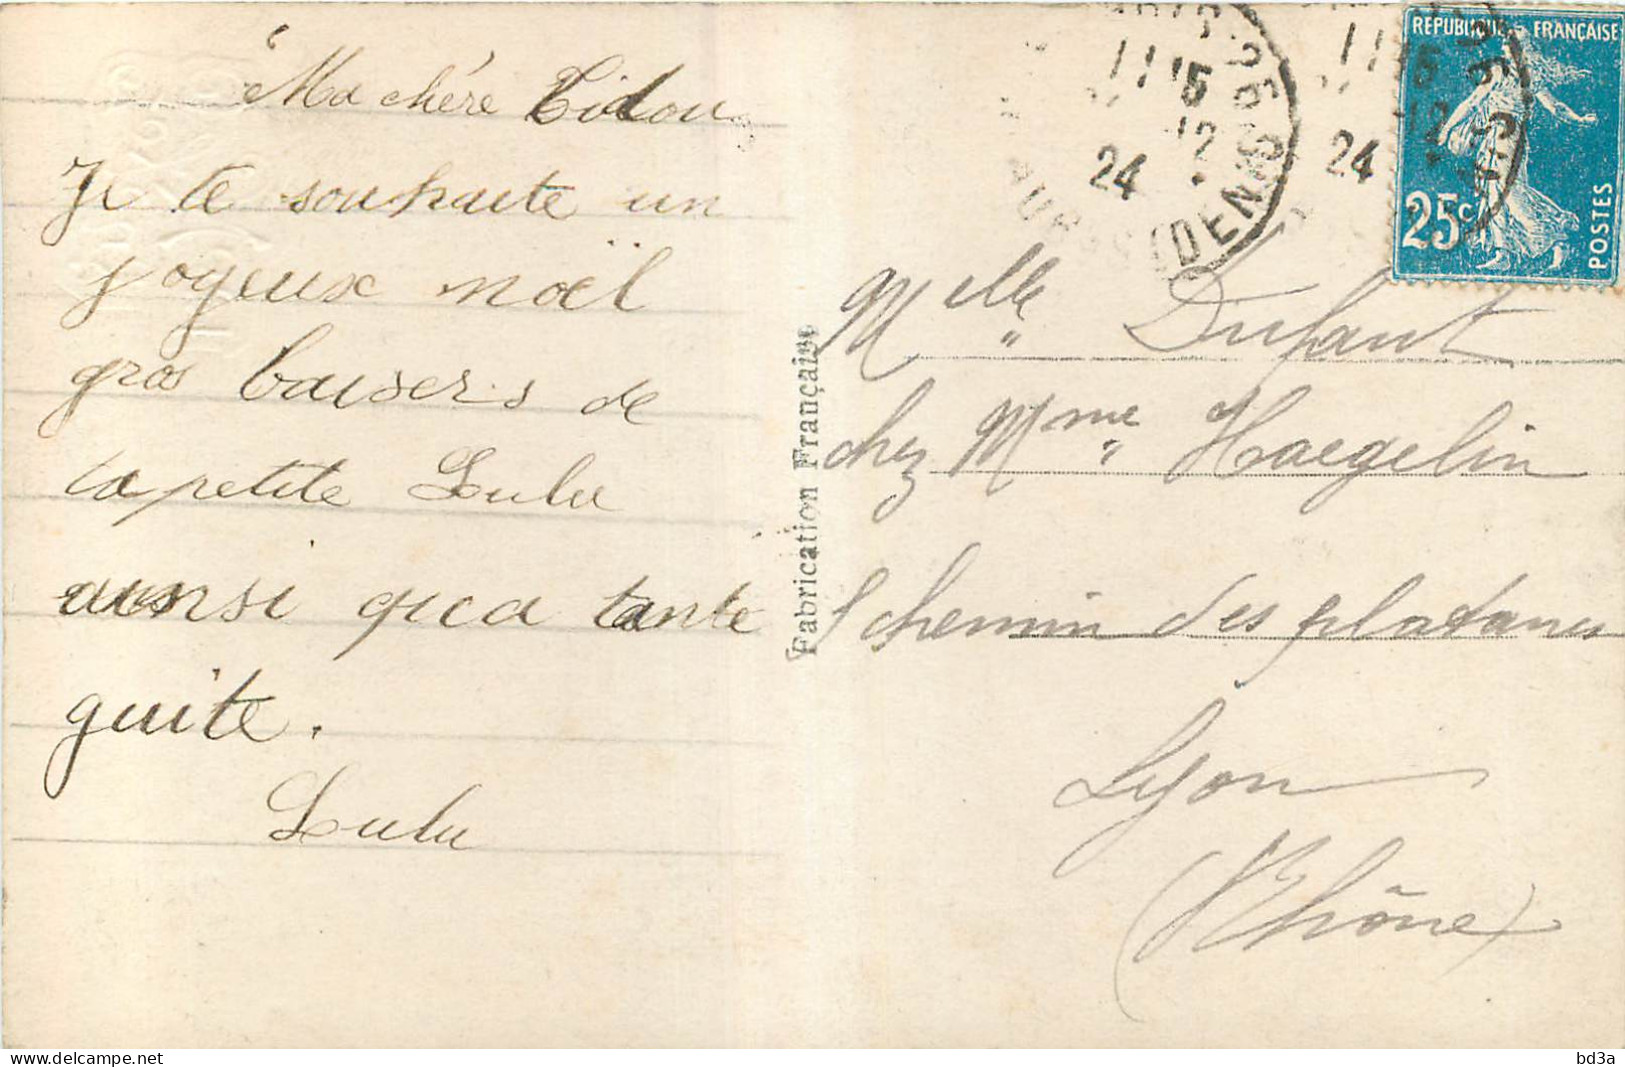 Ma chère Tidou
Je te souhaite un
joyeux noël
gros baisers de
ta petite Lulu
ainsi qu'a tante
guite.
Lulu
Fabrication Française
REPUBLIQUE FRANÇAISE
25c
POSTES
24
24
Melle Dufaut
chez Mme Haegelin
chemin des platanes
Lyon
(Rhône)
bd3a